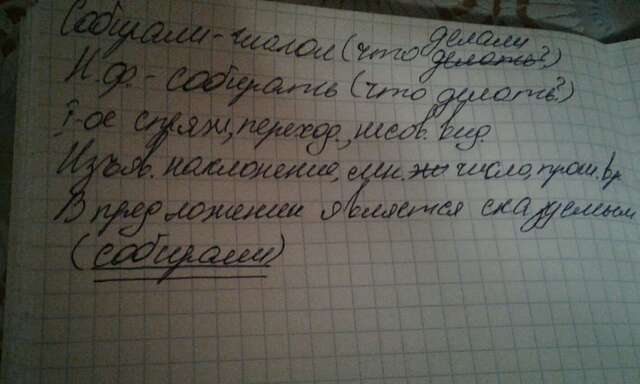 Собирали - глагол (что делали делать?)
Н.ф. - собирать (что делать?)
I-ое спряж., переход., несов. вид.
Изъяв. наклонение, мн. число, прош. вр.
В предложении является сказуемым
(собирали)